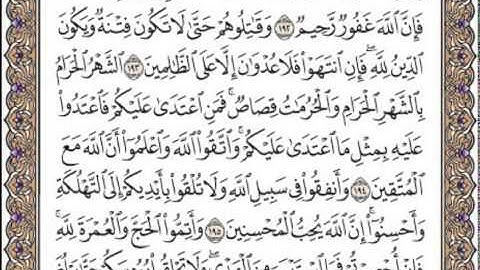 فَإِنَّ ٱللَّهَ غَفُورٌ رَّحِيمٌ ١٩٢ وَقَٰتِلُوهُمْ حَتَّىٰ لَا تَكُونَ فِتْنَةٌ وَيَكُونَ
ٱلدِّينُ لِلَّهِ ۖ فَإِنِ ٱنتَهَوْا۟ فَلَا عُدْوَٰنَ إِلَّا عَلَى ٱلظَّٰلِمِينَ ١٩٣ ٱلشَّهْرُ ٱلْحَرَامُ
بِٱلشَّهْرِ ٱلْحَرَامِ وَٱلْحُرُمَٰتُ قِصَاصٌ ۚ فَمَنِ ٱعْتَدَىٰ عَلَيْكُمْ فَٱعْتَدُوا۟
عَلَيْهِ بِمِثْلِ مَا ٱعْتَدَىٰ عَلَيْكُمْ ۚ وَٱتَّقُوا۟ ٱللَّهَ وَٱعْلَمُوٓا۟ أَنَّ ٱللَّهَ مَعَ
ٱلْمُتَّقِينَ ١٩٤ وَأَنفِقُوا۟ فِى سَبِيلِ ٱللَّهِ وَلَا تُلْقُوا۟ بِأَيْدِيكُمْ إِلَى ٱلتَّهْلُكَةِ
وَأَحْسِنُوٓا۟ ۛ إِنَّ ٱللَّهَ يُحِبُّ ٱلْمُحْسِنِينَ ١٩٥ وَأَتِمُّوا۟ ٱلْحَجَّ وَٱلْعُمْرَةَ لِلَّهِ ۚ